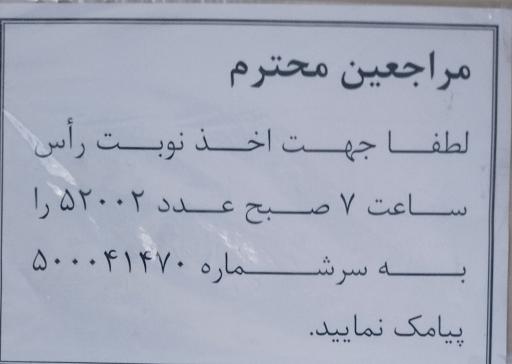 مراجعین محترم
لطفا جهت اخذ نوبت رأس
ساعت ۷ صبح عدد ۵۲۰۰۲ را
به سرشماره ۵۰۰۰۴۱۴۷۰
پیامک نمایید.